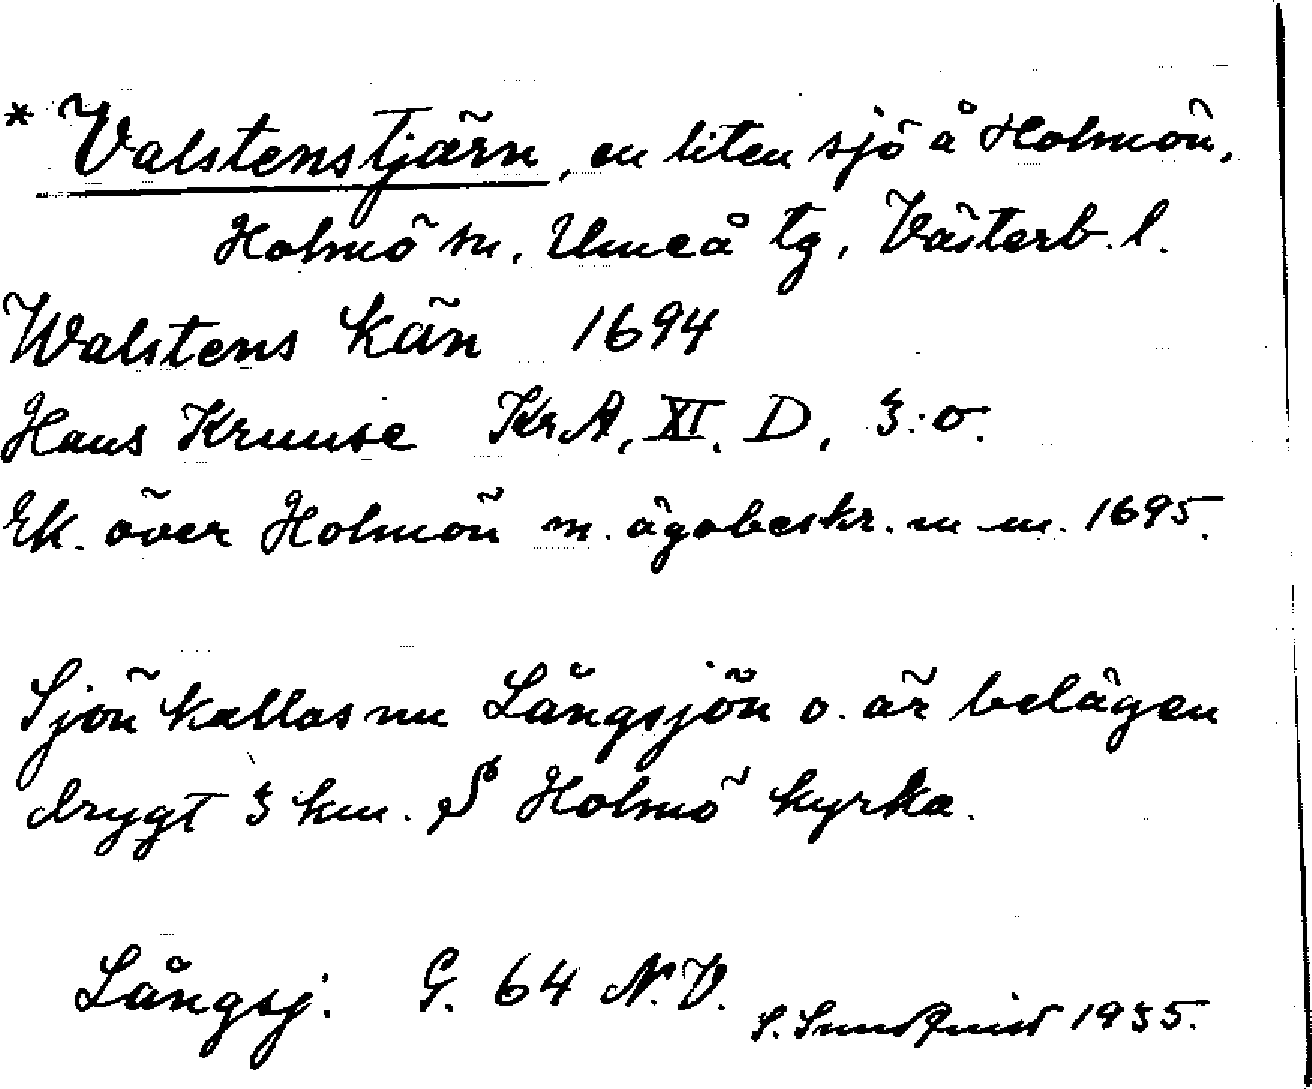 * Valstenstjärn, en liten sjö å Holmön,
Holmö sn, Umeå tg, Västerb. l.
Walstens Kän 1694
Hans Kruuse KrA, XI. D, 3:o.
Ek. över Holmön m. ägobeskr. m m. 1695.
Sjön kallas nu Långsjön o. är belägen
drygt 3 km. S Holmö kyrka.
Långsj. G. 64 N.V.
S. Sundqvist 1935.